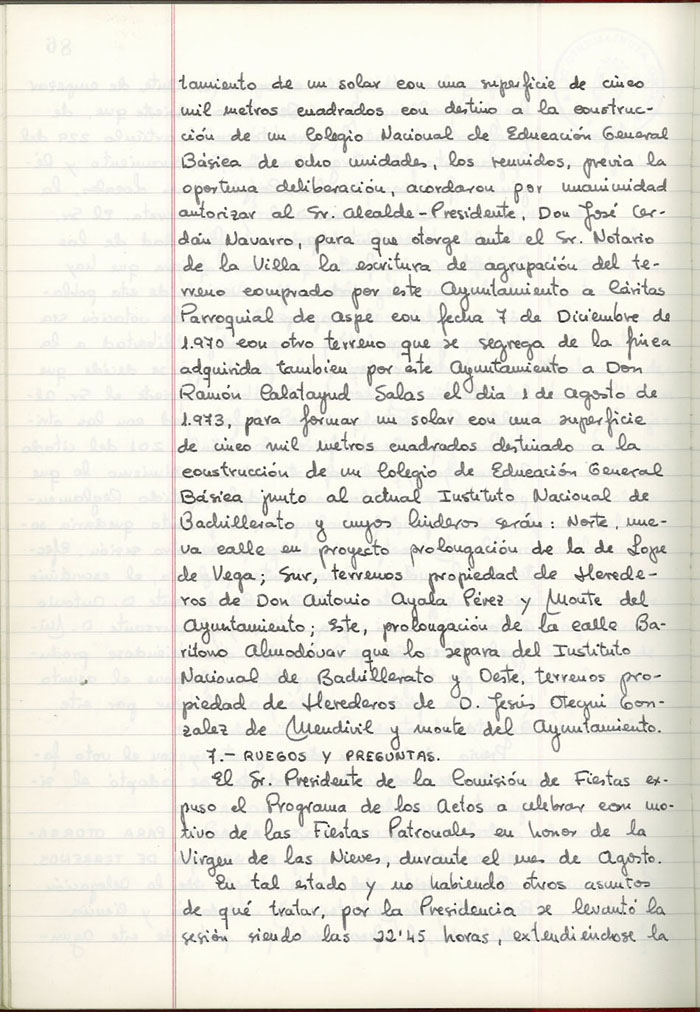 tamiento de un solar con una superficie de cinco
mil metros cuadrados con destino a la construc-
ción de un Colegio Nacional de Educación General
Básica de ocho unidades, los reunidos, previa la
oportuna deliberación, acordaron por unanimidad
autorizar al Sr. Alcalde-Presidente, Don José Cer-
dán Navarro, para que otorge ante el Sr. Notario
de la Villa la escritura de agrupación del te-
rreno comprado por este Ayuntamiento a Cáritas
Parroquial de Aspe con fecha 7 de Diciembre de
1.970 con otro terreno que se segrega de la finca
adquirida tambien por este Ayuntamiento a Don
Ramón Calatayud Salas el día 1 de Agosto de
1.973, para formar un solar con una superficie
de cinco mil metros cuadrados destinado a la
construcción de un Colegio de Educación General
Básica junto al actual Instituto Nacional de
Bachillerato y cuyos linderos serán: Norte, nue-
va calle en proyecto prolongación de la de Lope
de Vega; Sur, terrenos propiedad de Herede-
ros de Don Antonio Ayala Pérez y Monte del
Ayuntamiento; Este, prolongación de la calle Ba-
rítono Almodóvar que lo separa del Instituto
Nacional de Bachillerato y Oeste, terrenos pro-
piedad de Herederos de D. Jesús Otegui Gon-
zalez de Mendivil y monte del Ayuntamiento.
7.- RUEGOS Y PREGUNTAS.
El Sr. Presidente de la Comisión de Fiestas ex-
puso el Programa de los Actos a celebrar con mo-
tivo de las Fiestas Patronales en honor de la
Virgen de las Nieves, durante el mes de Agosto.
En tal estado y no habiendo otros asuntos
de qué tratar, por la Presidencia se levantó la
sesión siendo las 22'45 horas, extendiéndose la